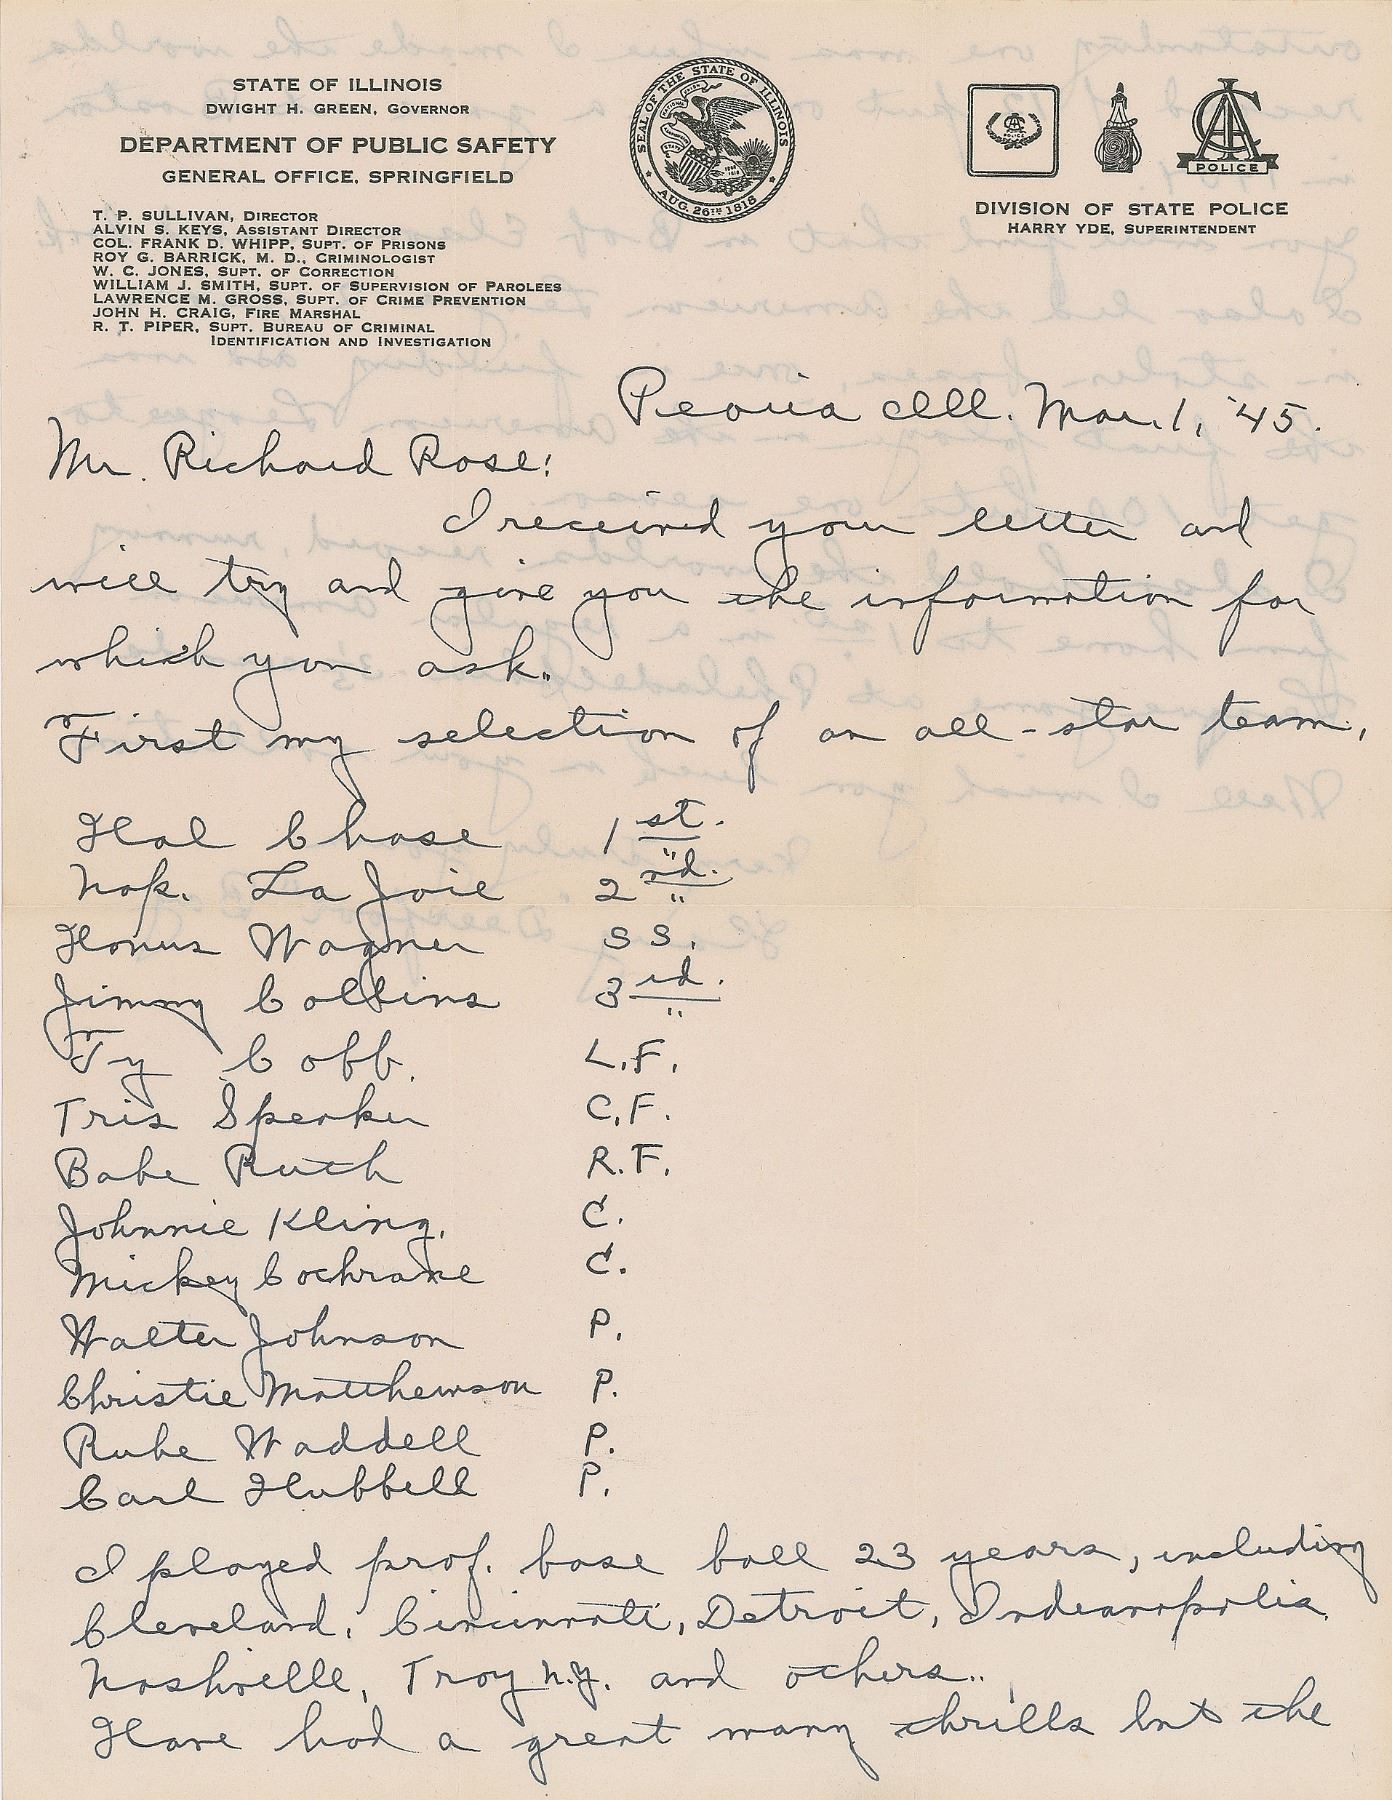 STATE OF ILLINOIS
DWIGHT H. GREEN, GOVERNOR
DEPARTMENT OF PUBLIC SAFETY
GENERAL OFFICE, SPRINGFIELD
T. P. SULLIVAN, DIRECTOR
ALVIN S. KEYS, ASSISTANT DIRECTOR
COL. FRANK D. WHIPP, SUPT. OF PRISONS
ROY G. BARRICK, M. D., CRIMINOLOGIST
W. C. JONES, SUPT. OF CORRECTION
WILLIAM J. SMITH, SUPT. OF SUPERVISION OF PAROLEES
LAWRENCE M. GROSS, SUPT. OF CRIME PREVENTION
JOHN H. CRAIG, FIRE MARSHAL
R. T. PIPER, SUPT. BUREAU OF CRIMINAL
IDENTIFICATION AND INVESTIGATION
SEAL OF THE STATE OF ILLINOIS
AUG. 26TH 1818
POLICE
DIVISION OF STATE POLICE
HARRY YDE, SUPERINTENDENT
Peoria Ill. Mar. 1, '45.
Mr. Richard Rose:
I received your letter and
will try and give you the information for
which you ask.
First my selection of an all-star team,
Hal Chase 1st.
Nap. La Joie 2nd.
Honus Wagner SS.
Jimmy Collins 3rd.
Ty Cobb. L.F.
Tris Speaker C.F.
Babe Ruth R.F.
Johnnie Kling. C.
Mickey Cochrane C.
Walter Johnson P.
Christie Matthewson P.
Rube Waddell P.
Carl Hubbell P.
I played prof. base ball 23 years, including
Cleveland, Cincinnati, Detroit, Indeanapolis
Nashville, Troy N.Y. and others..
Have had a great many thrills but the